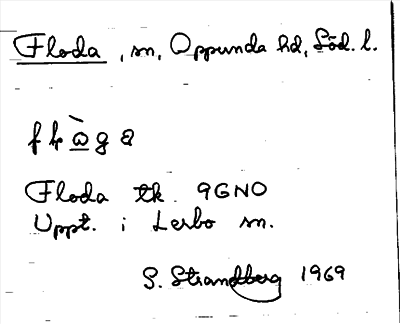 Floda, sn, Oppunda hd, Söd. l.
flὼ̲ga
Floda tk. 9GNO
Uppt. i Lerbo sn.
S. Strandberg 1969